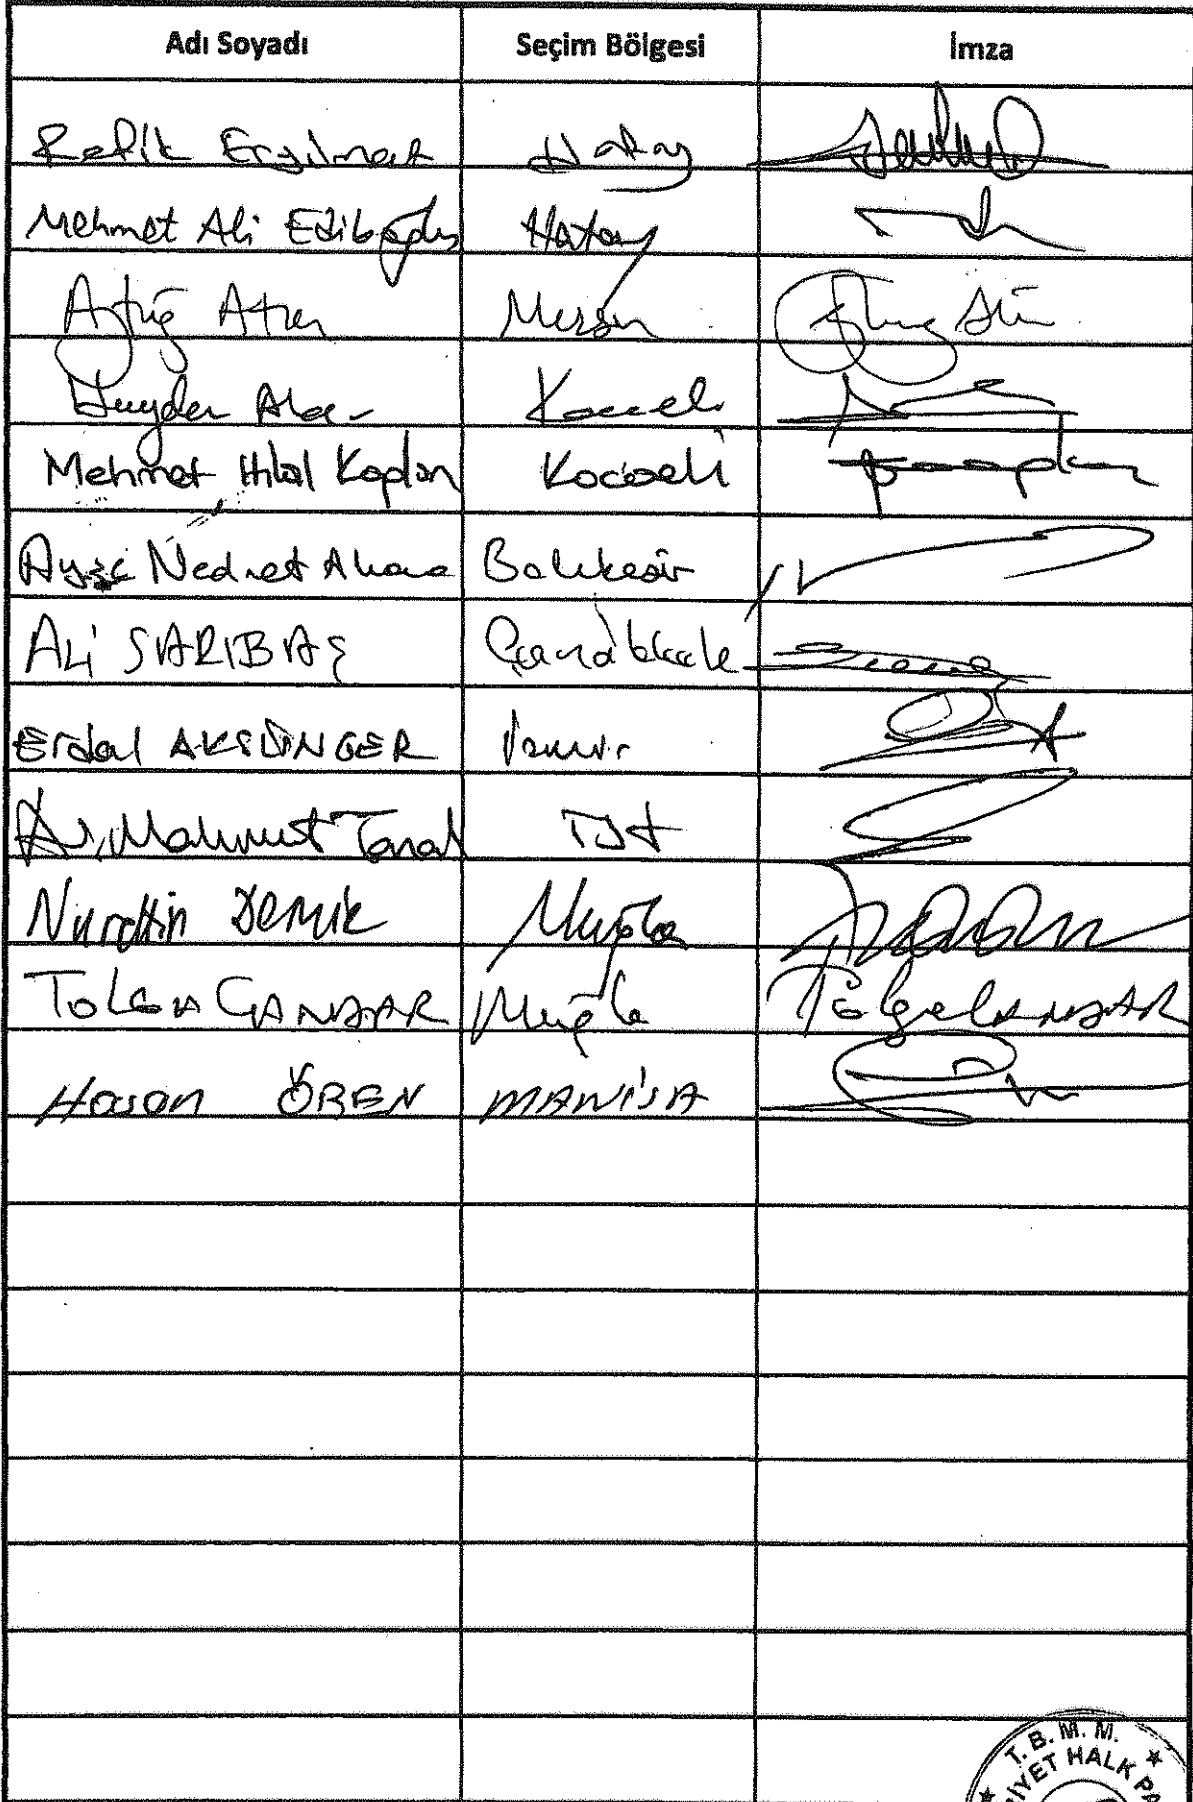 Adı Soyadı Seçim Bölgesi İmza
Refik Eryılmaz Hatay
Mehmet Ali Ediboğlu Hatay
Aytuğ Atıcı Mersin
Haydar Akar Kocaeli
Mehmet Hilal Kaplan Kocaeli
Ayşe Nedret Akova Balıkesir
Ali SARIBAŞ Çanakkale
Erdal AKSÜNGER İzmir
Av. Mahmut Tanal İst
Nurettin Demir Muğla
TOLGA ÇANDAR Muğla Tolga ÇANDAR
Hasan ÖREN MANİSA
T.B.M.M.
HALK